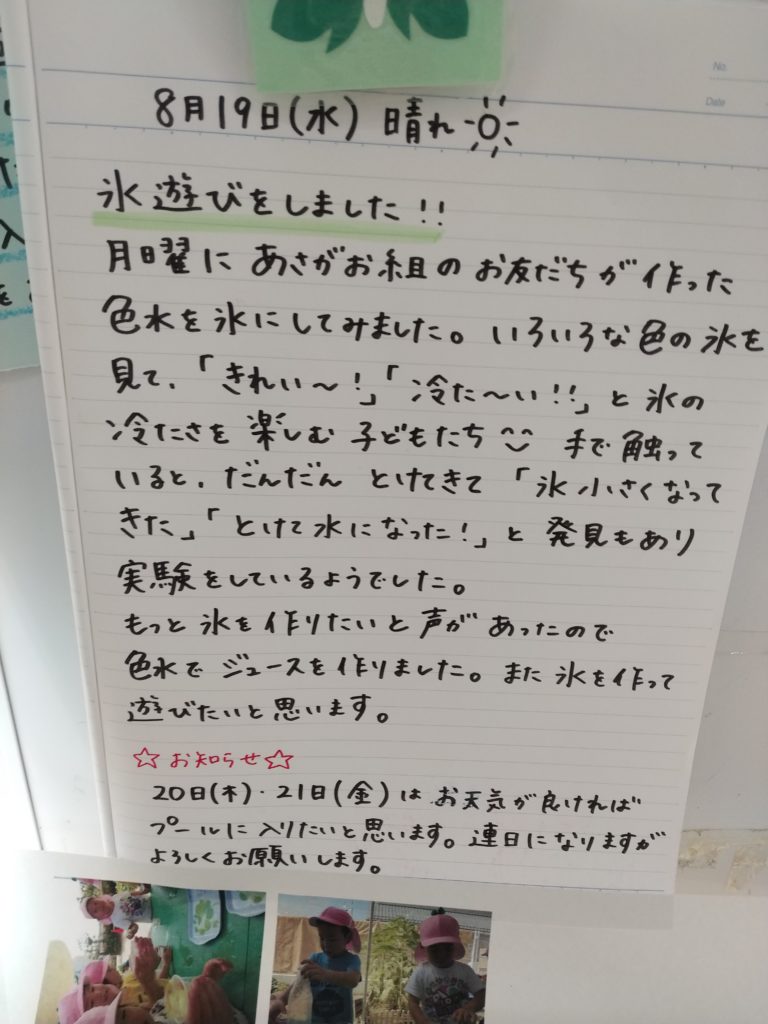 No.
Date
8月19日(水) 晴れ
氷遊びをしました!!
月曜に あさがお組の お友だちが 作った
色水を 氷に してみました。いろいろな色の 氷を
見て、「きれい〜!」「冷た〜い!!」と 氷の
冷たさを 楽しむ 子どもたち 手で 触って
いると、だんだん とけてきて 「氷 小さくなって
きた」「とけて 水に なった!」と 発見もあり
実験をしているようでした。
もっと 氷を 作りたいと 声が あったので
色水で ジュースを 作りました。また 氷を 作って
遊びたいと 思います。
☆お知らせ☆
20日(木)・21日(金)は お天気が 良ければ
プールに 入りたいと 思います。連日に なりますが
よろしく お願いします。